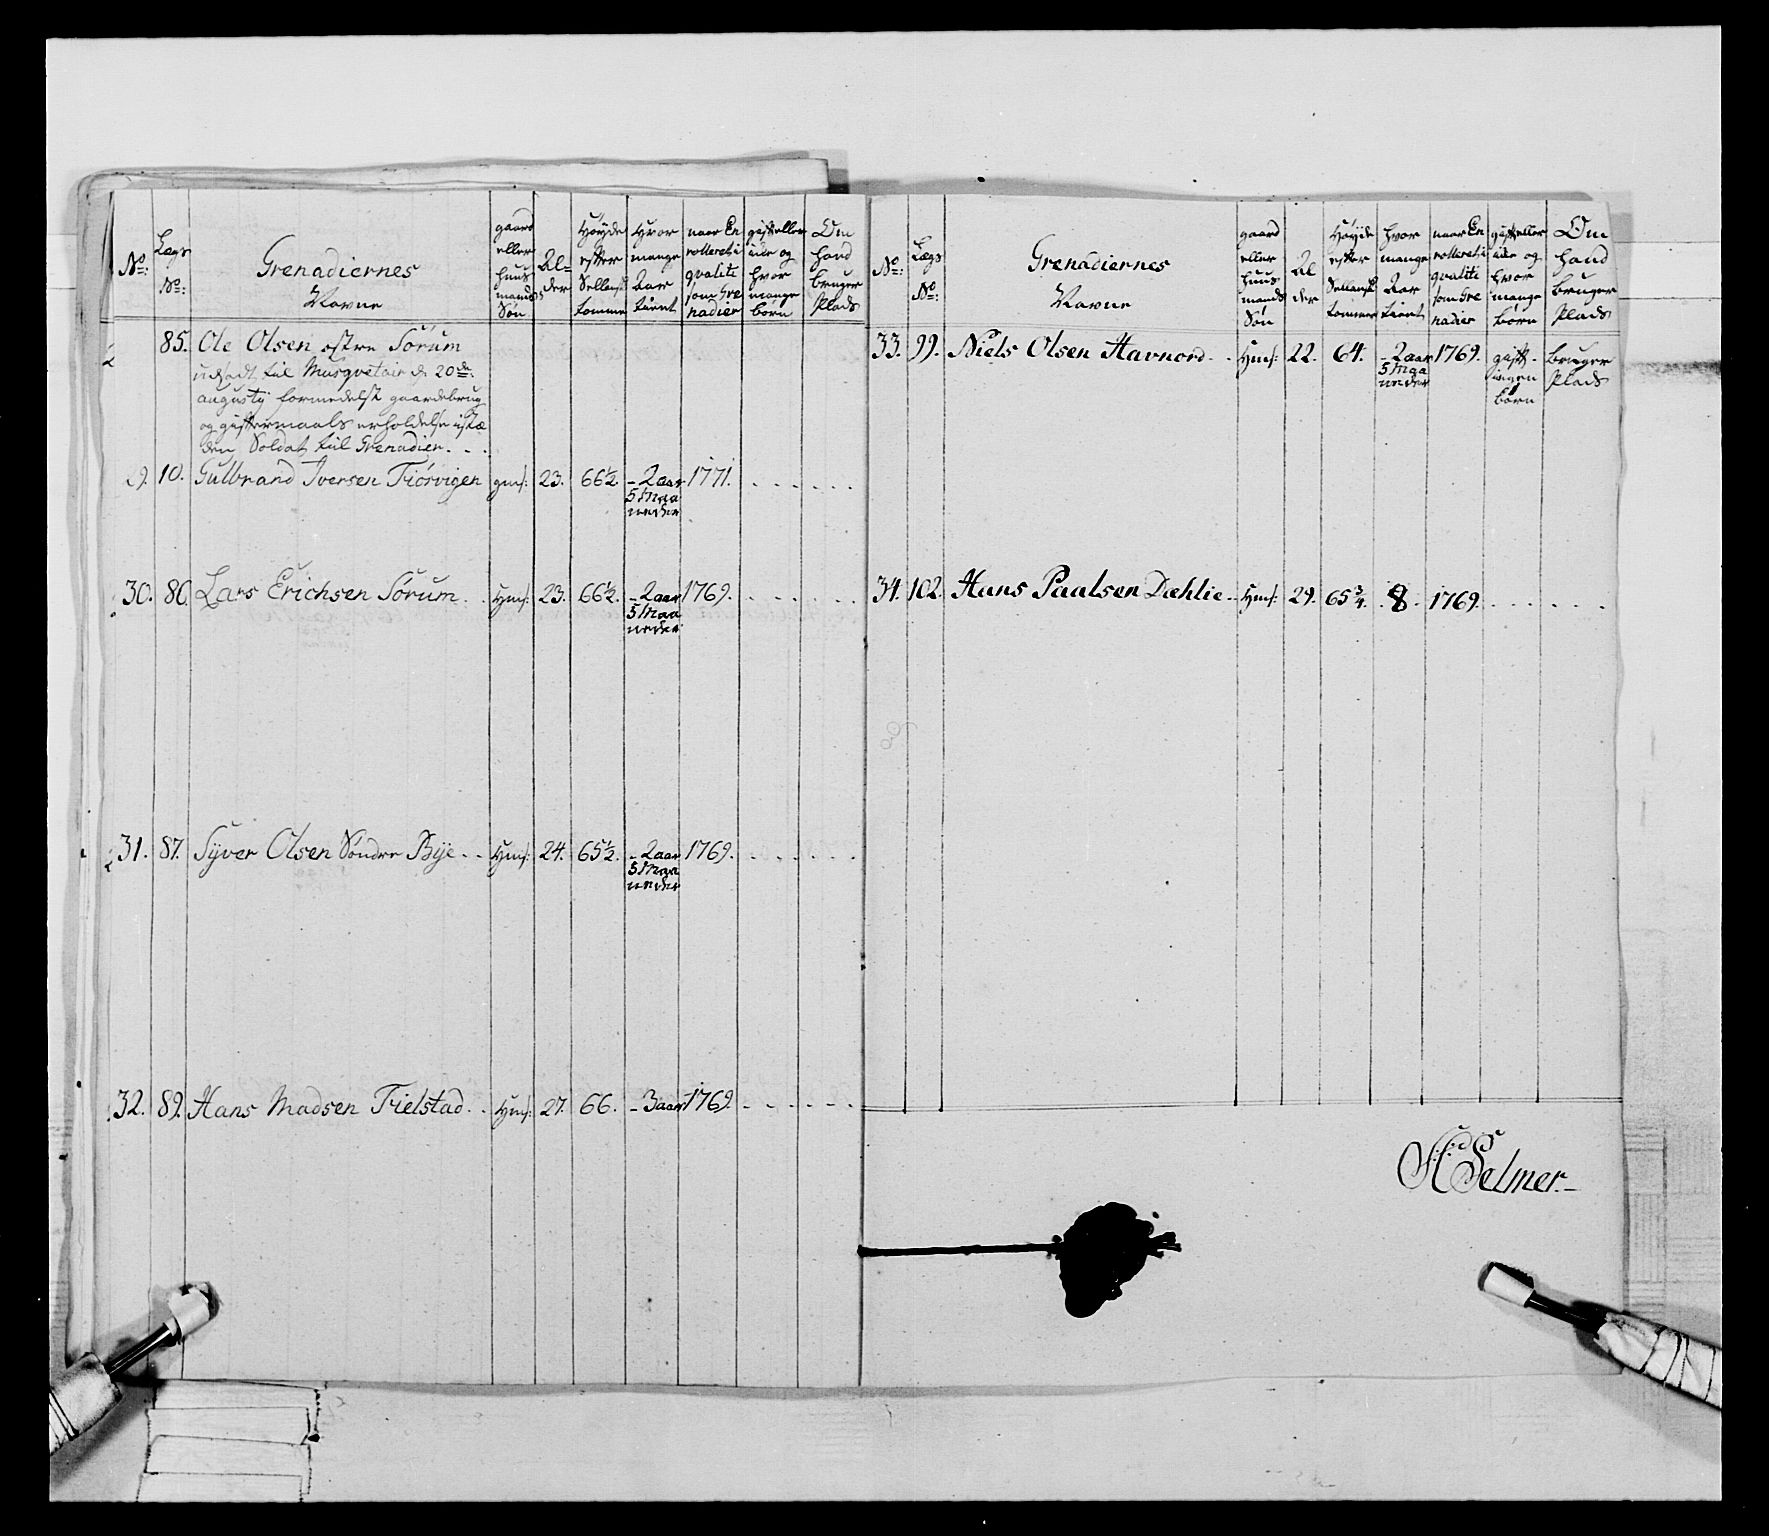 No: Lægs No: Grenadiernes Navne gaard eller huus mands Søn Al= der Høyde efter Sellansk tomme Hvor mange Aar tient naar En rolleret i qvalite som Gre nadier gift eller ude og hvor mange børn Om hand bruger Plads
85. Ole Olsen østre Sørum
udsadt til Musqvetair d. 20de:
augustij formedelst gaardebrug
og giftermaals erholdelse istæ
den Soldat til Grenadier. . .
29. 10. Gulbrand Iversen Tiørvigen gms: 23. 66½ - 2 aar 5 Maa neder 1771. . . . . . .
30. 86. Lars Erichsen Sørum. . Hms: 23. 66½. - 2 aar 5 Maa neder 1769. . . . . . .
31. 87. Syver Olsen Søndre Bÿe. . Hms: 24. 65½. - 2 aar 5 Maa neder 1769. . . . . . .
32. 89. Hans Madsen Fielstad. . Hms: 27. 66. - 3 aar 1769. . . . . . .
No: Lægs No: Grenadiernes Navne gaard eller huus mands Søn Al der Høyde efter Sellansk tommer hvor mange Aar tient naar En rolleret i qvalite som Gre nadier gift eller ude og hvor mange børn Om hand bruger Plads
33. 99. Niels Olsen Havnord. . Hms: 22. 64. - 2 aar 5 Maa neder 1769. gift - ingen børn bruger Plads
34. 102. Hans Paalsen Dæhlie. . Hms: 29. 65¾. . 8. 1769. . . . . . .
H Selmer.